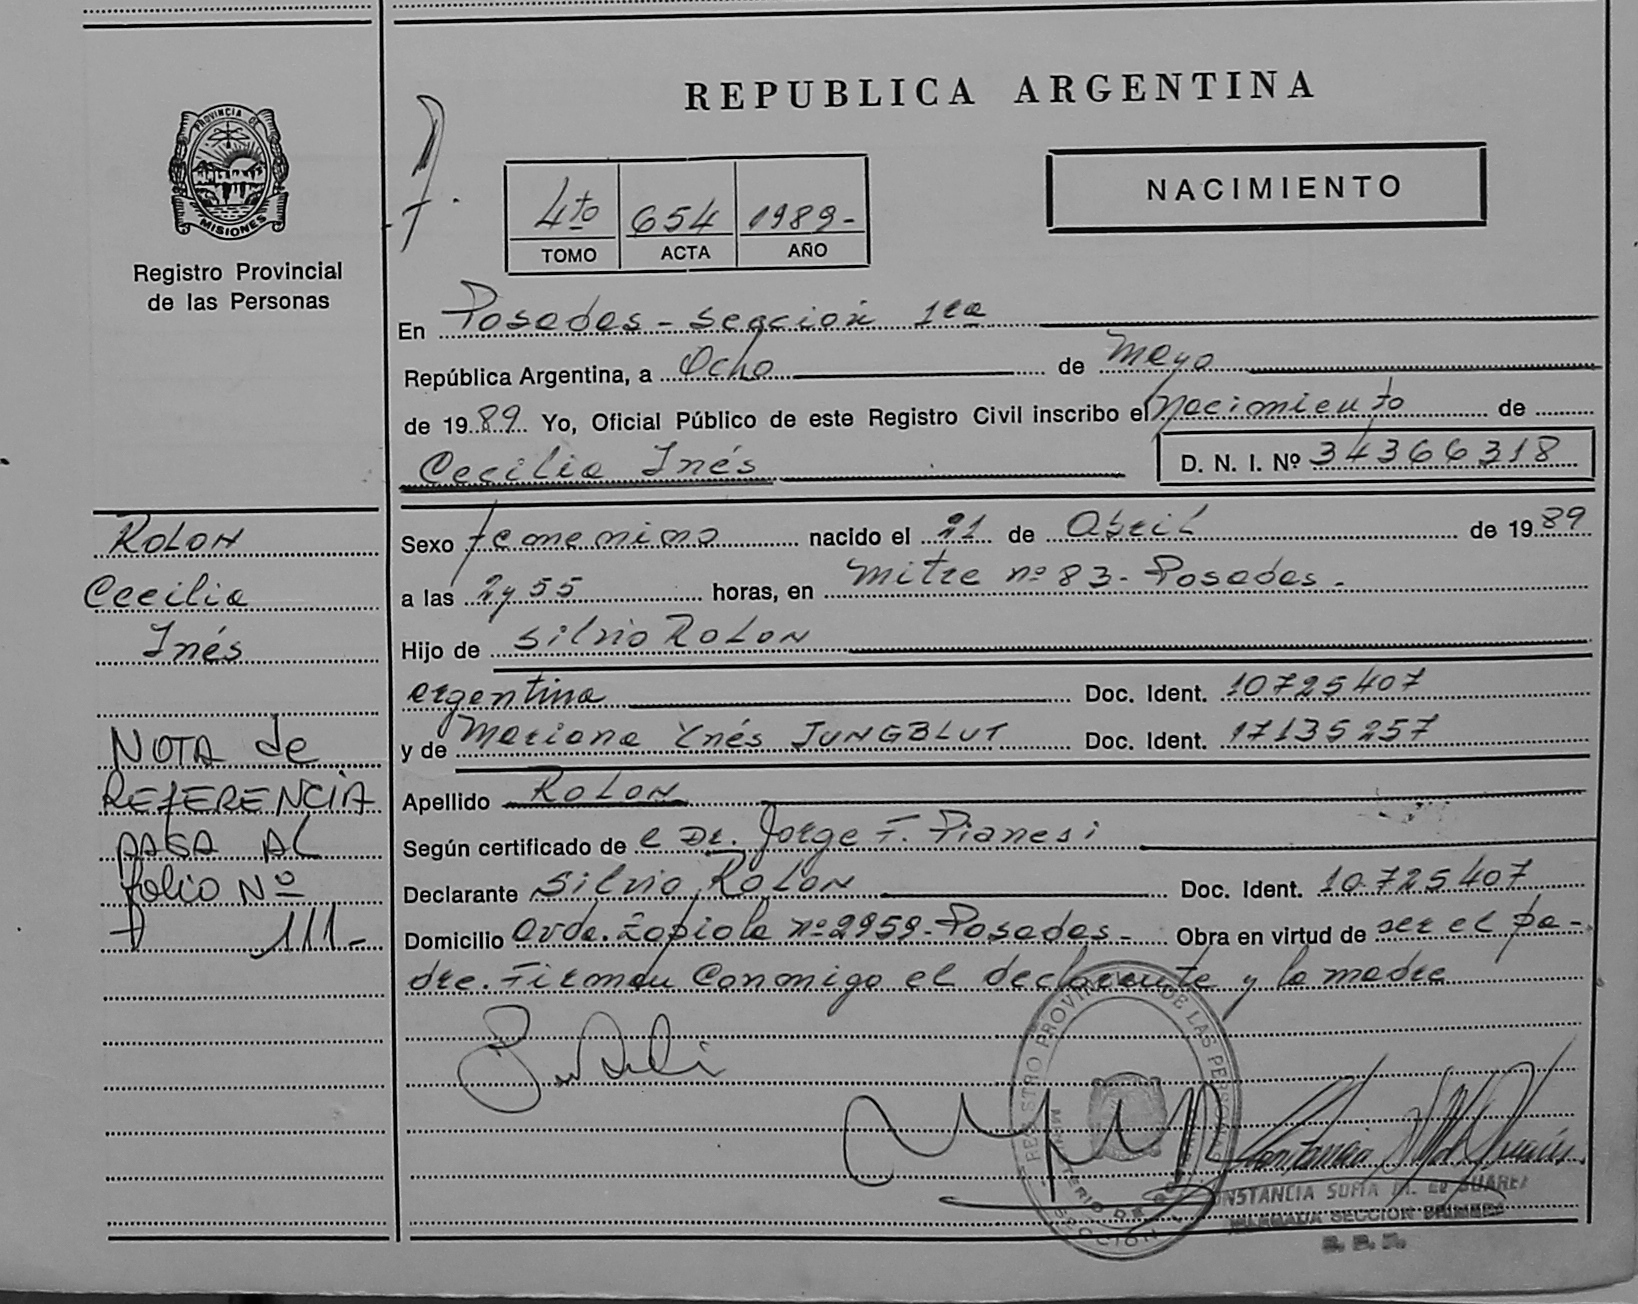 PROVINCIA DE
MISIONES
Registro Provincial
de las Personas
REPUBLICA ARGENTINA
NACIMIENTO
4to 654 1989-
TOMO ACTA AÑO
En Posadas - Sección 1ra
República Argentina, a Ocho de Mayo
de 1989. Yo, Oficial Público de este Registro Civil inscribo el Nacimiento de
Cecilia Inés D. N. I. Nº 34366318
ROLON
Cecilia
Inés
Sexo femenino nacido el 21 de Abril de 1989
a las 2y 55 horas, en Mitre nº 83 - Posadas -
Hijo de Silvio ROLON
argentina Doc. Ident. 10725407
y de Mariana Ynés JUNGBLUT Doc. Ident. 17135257
Apellido ROLON
Según certificado de e Dr. Jorge F. Pianesi
Declarante Silvio ROLON Doc. Ident. 10.725.407
Domicilio Avda. Zapiola nº 2959 - Posadas - Obra en virtud de ser el pa-
dre. Firman Conmigo el declarante y la madre
NOTA de
REFERENCIA
PASA AL
folio Nº
111-
REGISTRO PROVINCIAL DE LAS PERSONAS
CONSTANCIA SOFIA M. de SUAREZ
ENCARGADA SECCION PRIMERA